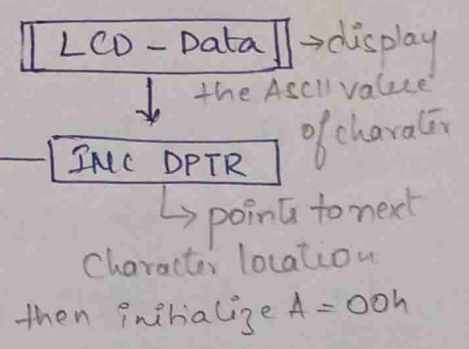 LCD - Data → display
the ASCII value
of charater
INC DPTR
↳ points to next
Character location
then initialize A = 00h